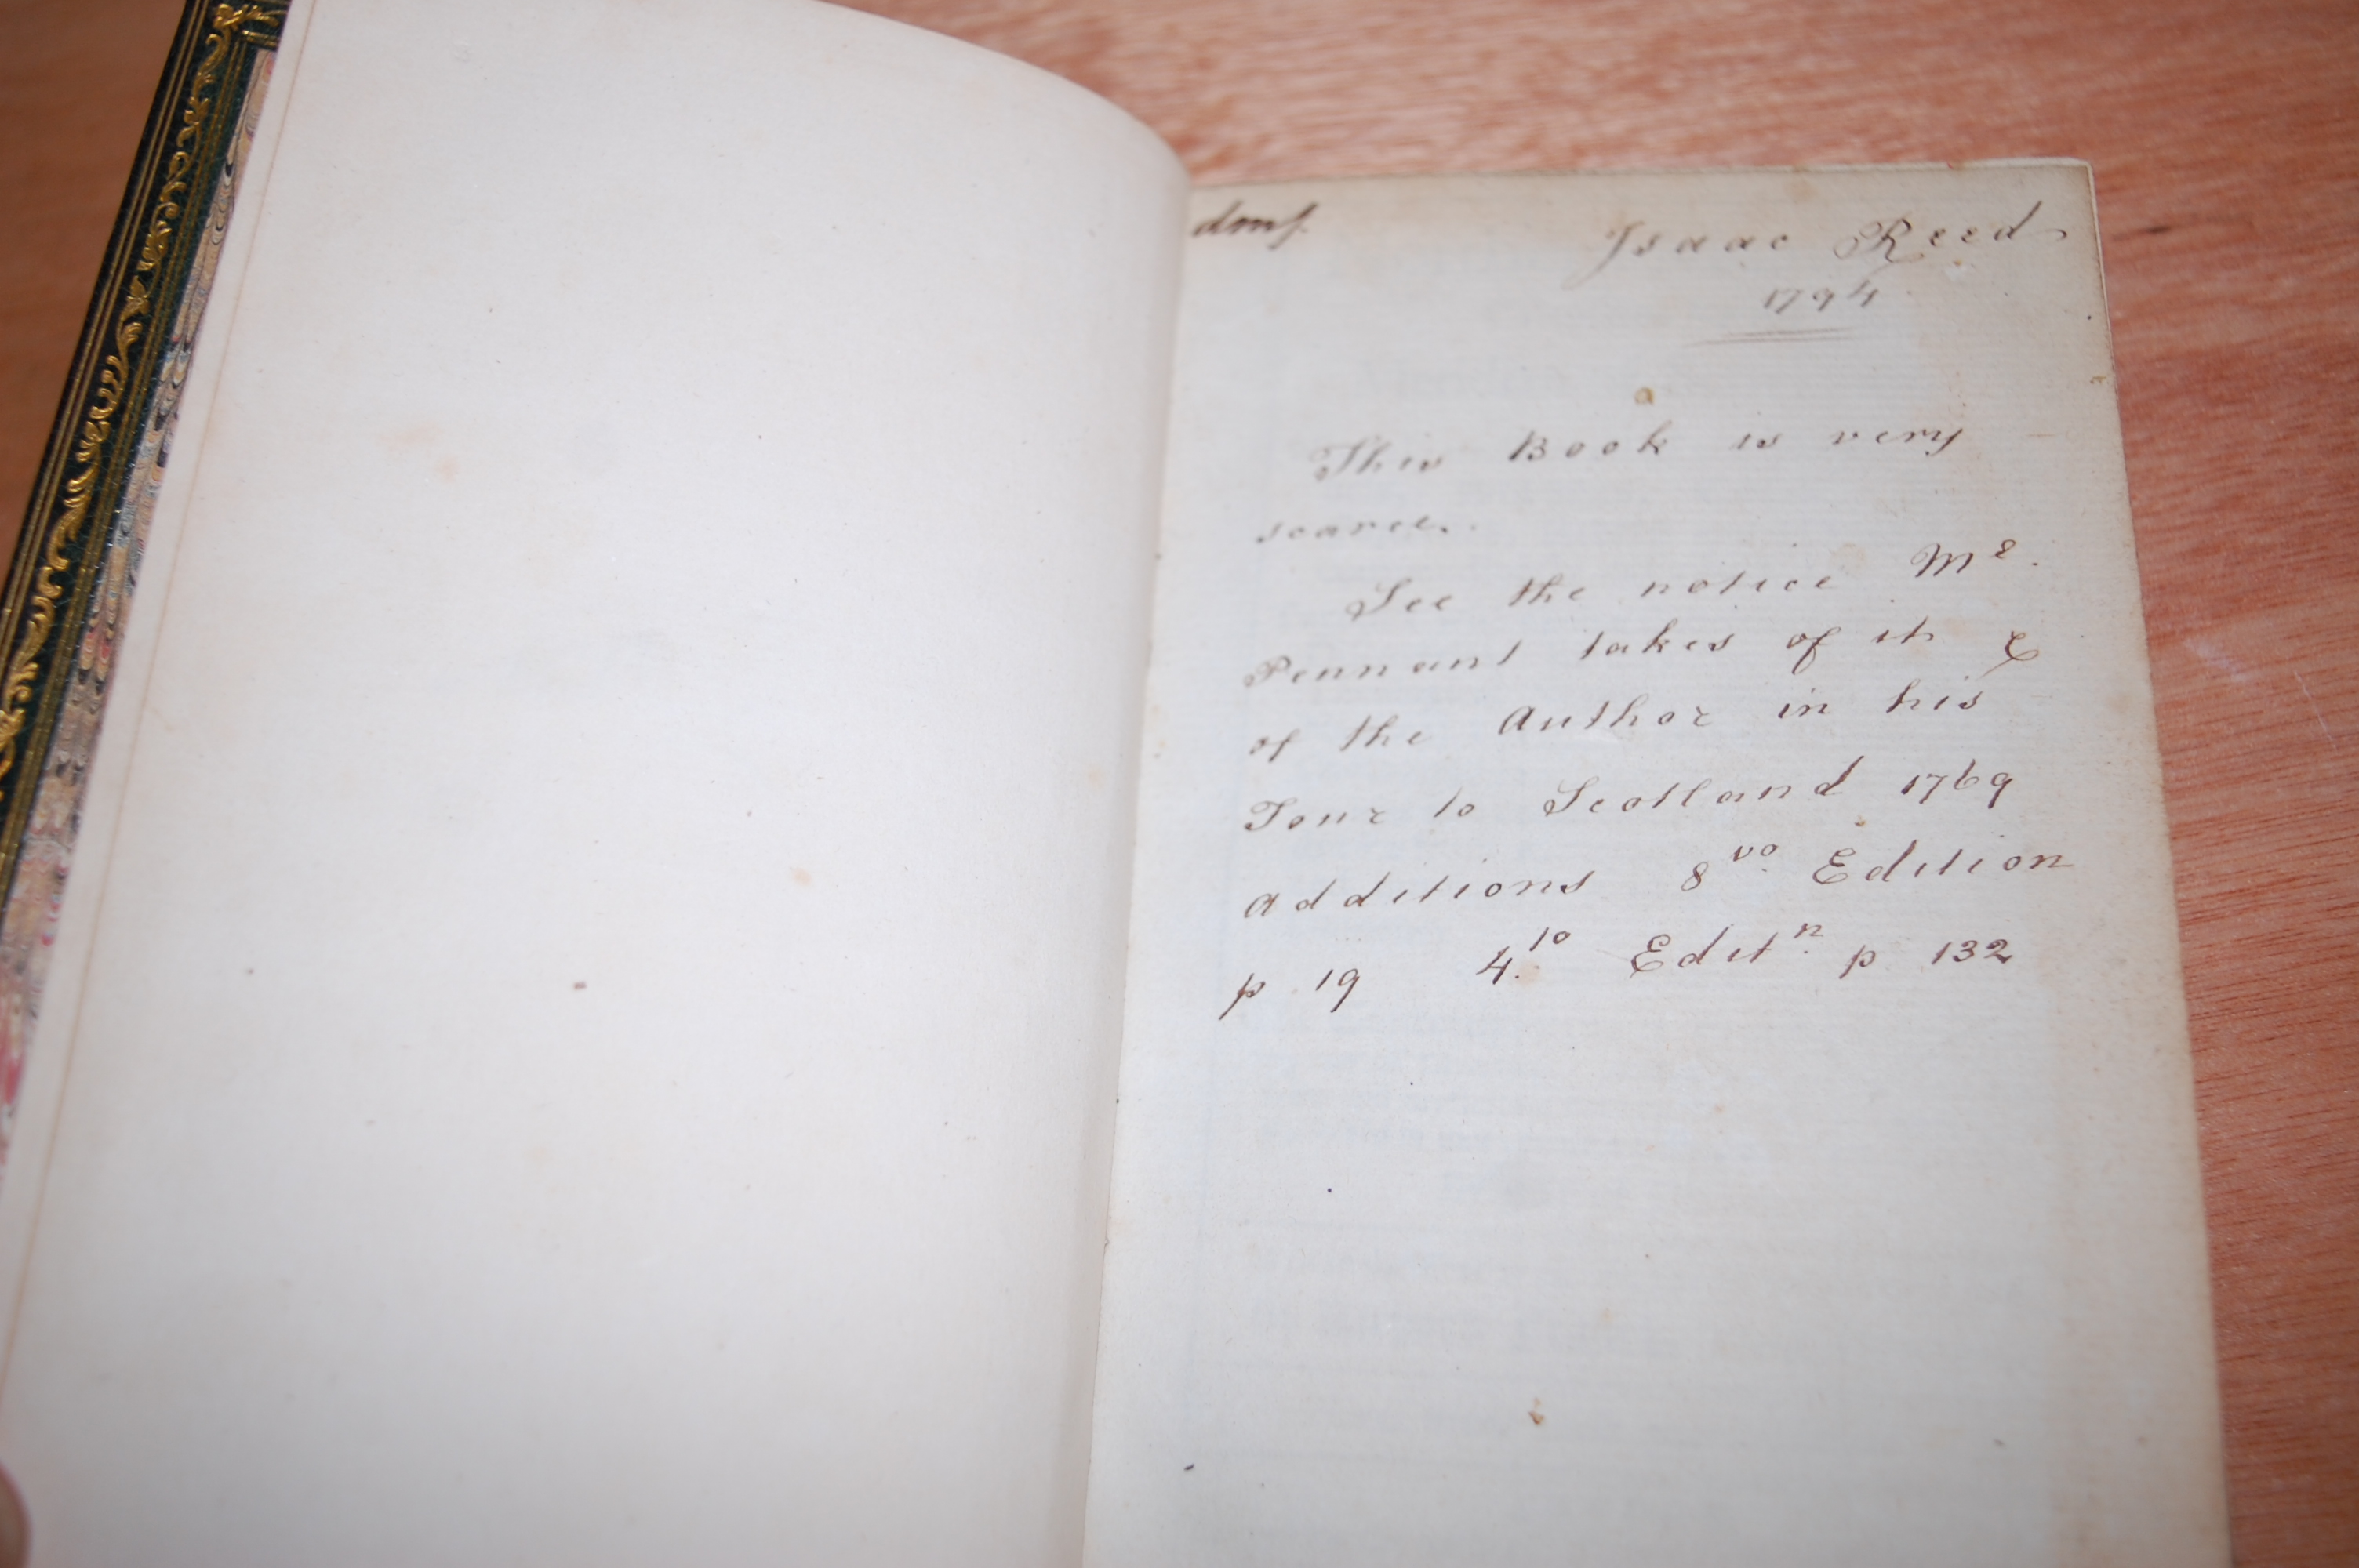 Isaac Reed
1794
This Book is very
scarce.
See the notice Mr.
Pennant takes of it &
of the Author in his
Tour to Scotland 1769
Additions 8vo. Edition
p 19 4.to Editn. p 132